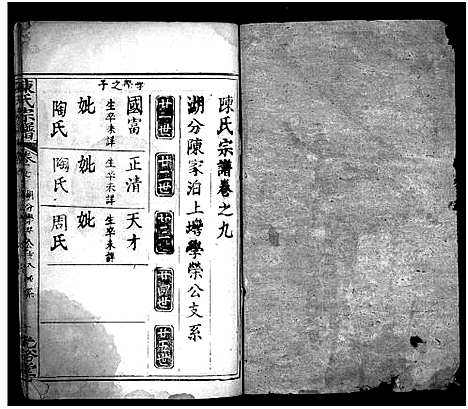 陳氏宗譜卷之九
湖分陳家泊上塆學榮公支系
廿一世
廿二世
廿三世
廿四世
廿五世
學榮之子
國富
生卒未詳
妣
陶氏
正清
生卒未詳
妣
陶氏
天才
生卒未詳
妣
周氏
陳氏宗譜